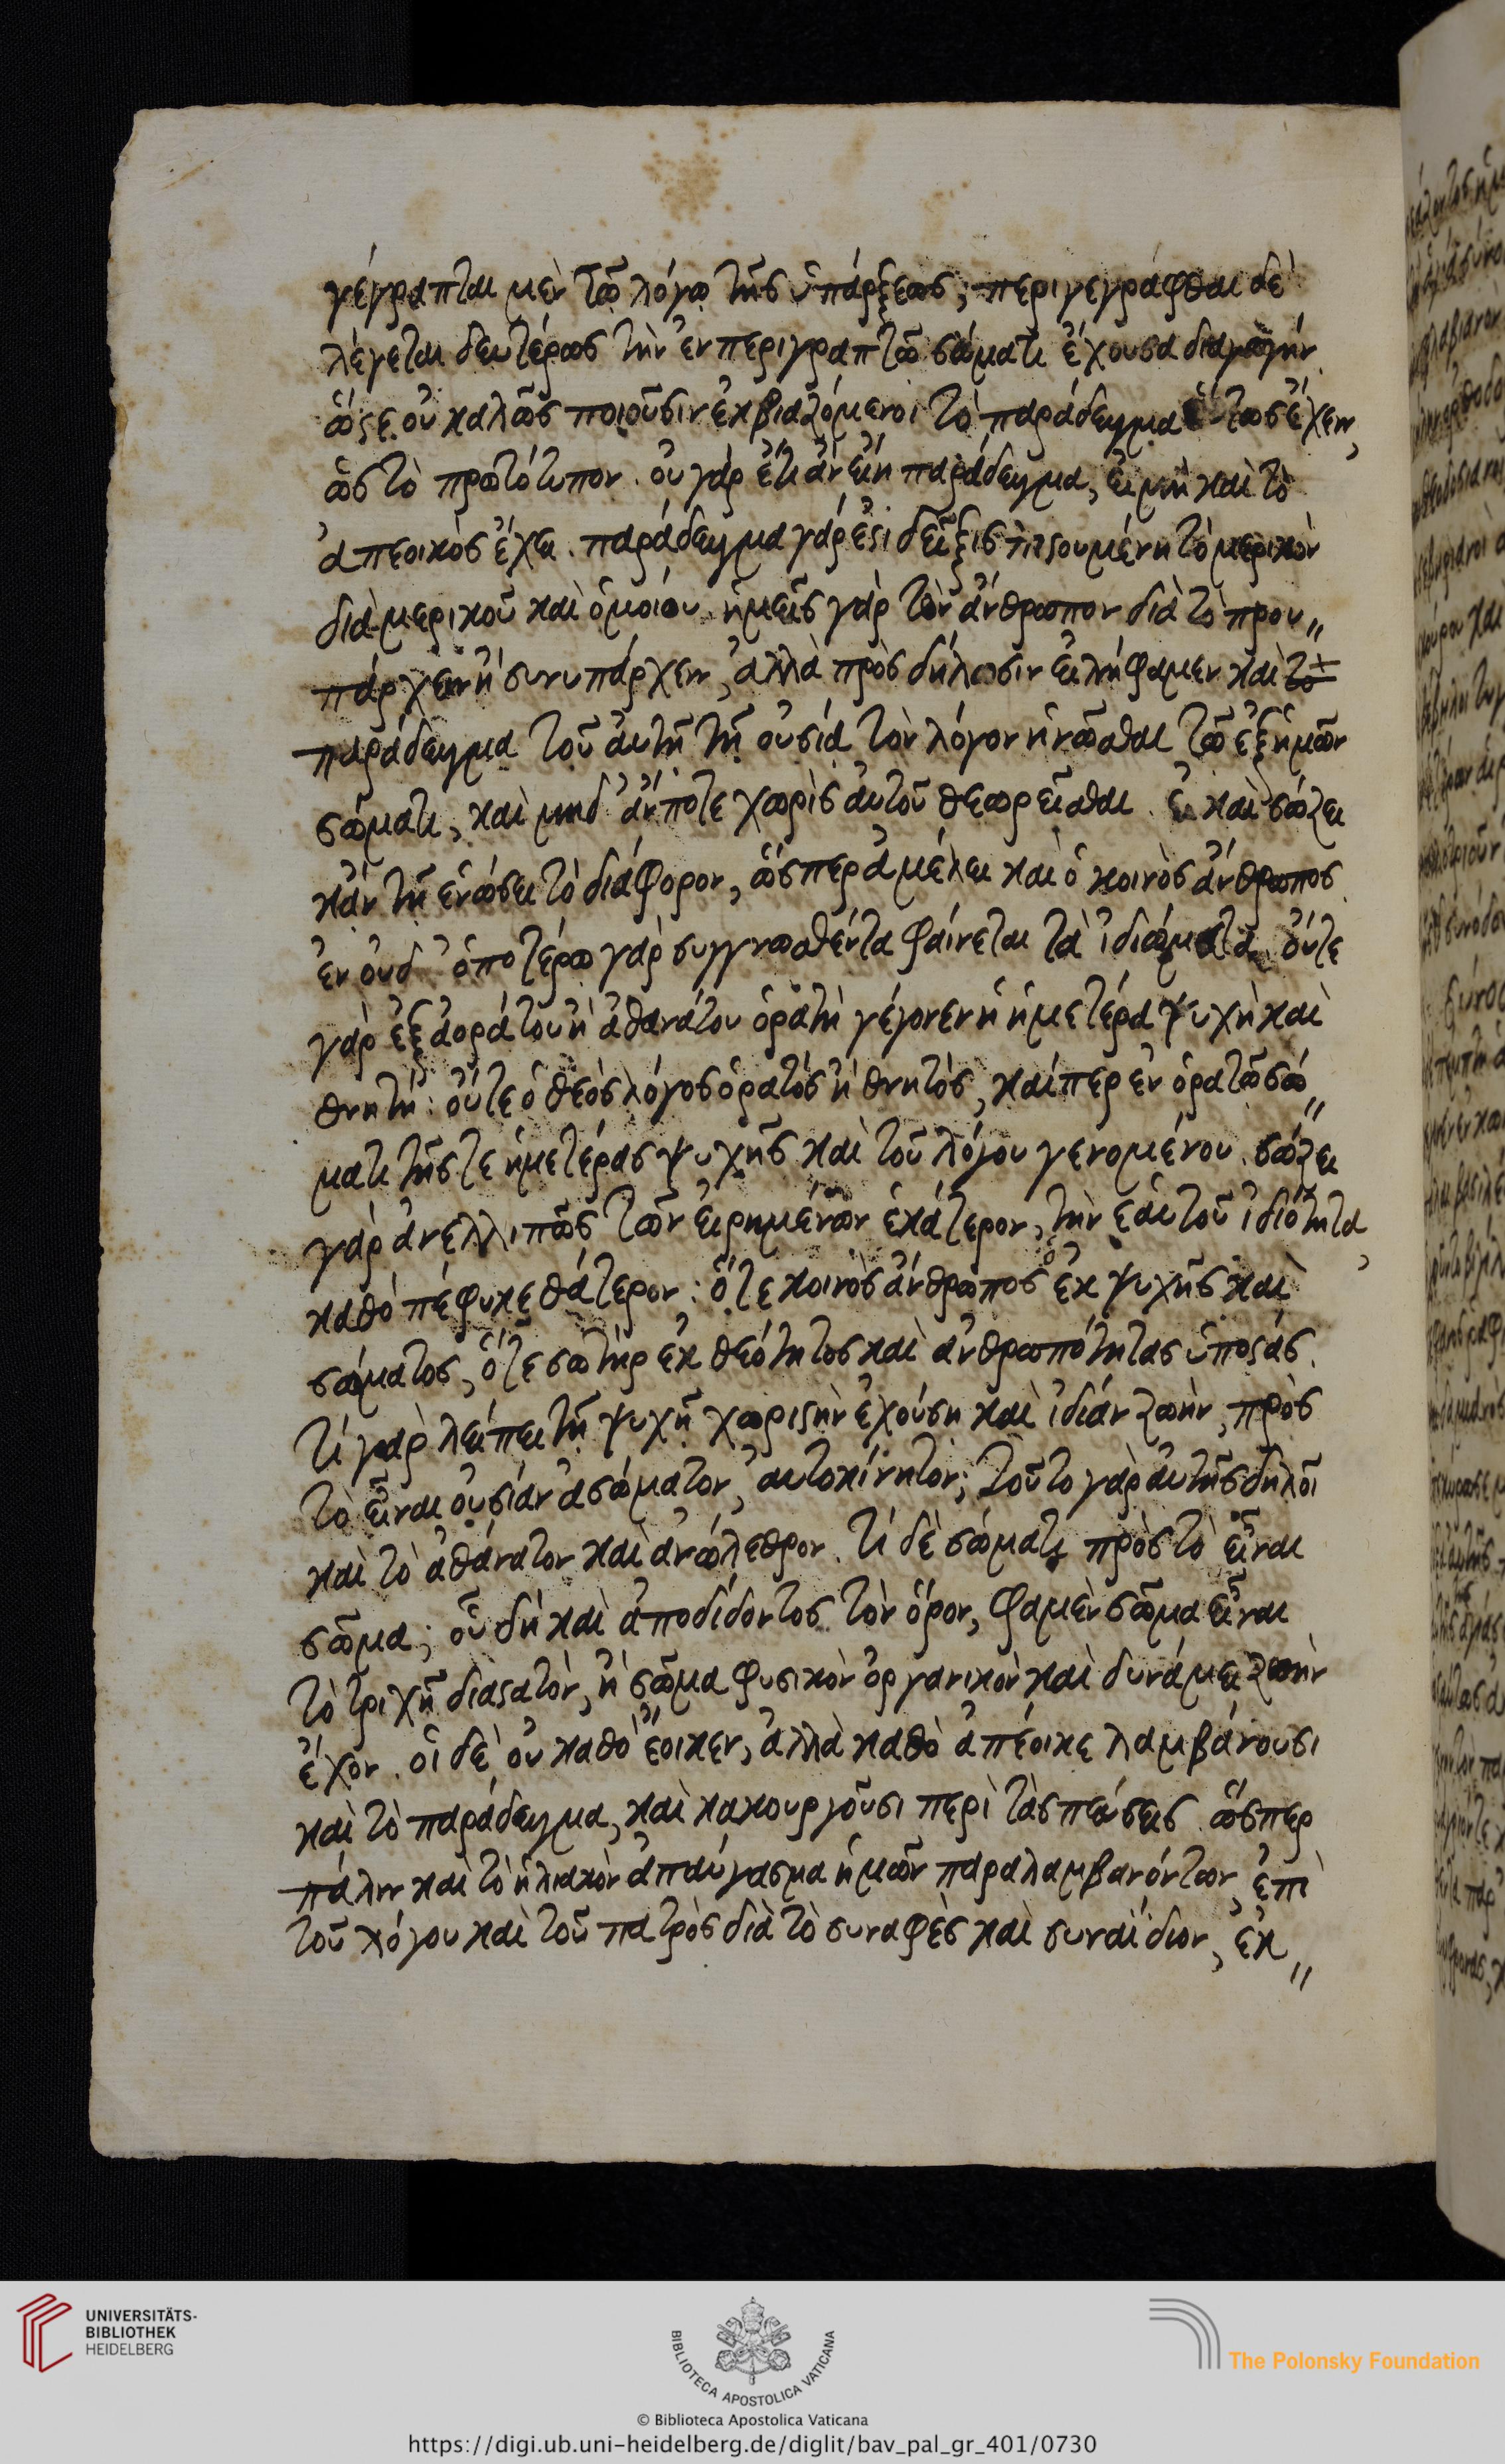 γέγραπται μὲν τῶ λόγω τῆς ὑπάρξεως, περιγεγράφθαι δὲ
λέγεται δευτέρως τὴν ἐν περιγραπτῶ σώματι ἔχουσα διαγωγήν
ὥστε οὐ καλῶς ποιοῦσιν ἐκβιαζόμενοι τὸ παράδειγμα οὕτως ἔχειν,
ὡς τὸ πρωτότυπον. οὐ γὰρ ἔτι ἂν εἴη παράδειγμα, εἰ μὴ καὶ τὸ
ἀπεοικὸς ἔχει. παράδειγμα γάρ ἐστι δεῖξις πιστουμένη τὸ μερικὸν
διὰ μερικοῦ καὶ ὁμοίου. ἡμεῖς γὰρ τὸν ἄνθρωπον διὰ τὸ πρου〃
πάρχειν ἢ συνυπάρχειν, ἀλλὰ πρὸς δήλωσιν εἰλήφαμεν καὶ τὸ
παράδειγμα τοῦ αὐτῆ τῆ οὐσία τὸν λόγον ἡνῶσθαι τῶ ἐξ ἡμῶν
σώματι, καὶ μηδ' ἄν ποτε χωρὶς αὐτοῦ θεωρεῖσθαι. εἰ καὶ σώζει
κἀν τῆ ἑνώσει τὸ διάφορον, ὥσπερ ἀμέλει καὶ ὁ κοινὸς ἄνθρωπος
ἐν οὐδ' ὁποτέρω γὰρ συγγνωσθέντα φαίνεται τὰ ἰδιώματα. οὔτε
γὰρ ἐξ ἀοράτου ἢ ἀθανάτου ὁρατὴ γέγονεν ἡ ἡμετέρα ψυχὴ καὶ
θνητή: οὔτε ὁ θεὸς λόγος ὁρατὸς ἢ θνητός, καίπερ ἐν ὁρατῶ σώ〃
ματι τῆς τε ἡμετέρας ψυχῆς καὶ τοῦ λόγου γενομένου. σώζει
γὰρ ἀνελλιπῶς τῶν εἰρημένων ἑκάτερον, τὴν ἑαυτοῦ ἰδιότητα,
καθὸ πέφυκε θάτερον: ὅ τε κοινὸς ἄνθρωπος ὁ ἐκ ψυχῆς καὶ
σώματος, ὅ τε σωτὴρ ἐκ θεότητος καὶ ἀνθρωπότητας ὑποστάς.
τί γὰρ λείπει τῆ ψυχῆ χωριστὴν ἐχούση καὶ ἰδίαν ζωὴν, πρὸς
τὸ εἶναι οὐσίαν ἀσώματον, αὐτοκίνητον; τοῦτο γὰρ αὐτῆς δηλοῖ
καὶ τὸ ἀθάνατον καὶ ἀνώλεθρον. τί δὲ σώματι πρὸς τὸ εἶναι
σῶμα; οὗ δὴ καὶ ἀποδίδοντος τὸν ὅρον, φαμὲν σῶμα εἶναι
τὸ τριχῆ διαστατὸν, ἢ σῶμα φυσικὸν ὀργανικὸν καὶ δυνάμει ζωὴν
ἔχον. οἱ δὲ οὐ καθὸ ἔοικεν, ἀλλὰ καθὸ ἀπέοικε λαμβάνουσι
καὶ τὸ παράδειγμα, καὶ κακουργοῦσι περὶ τὰς πεύσεις. ὥσπερ
πάλιν καὶ τὸ ἡλιακὸν ἀπαύγασμα ἡμῶν παραλαμβανόντων ἐπὶ
τοῦ λόγου καὶ τοῦ πατρὸς διὰ τὸ συναφὲς καὶ συναΐδιον, ἐκ〃
UNIVERSITÄTS-
BIBLIOTHEK
HEIDELBERG
BIBLIOTECA APOSTOLICA VATICANA
The Polonsky Foundation
© Biblioteca Apostolica Vaticana
https://digi.ub.uni-heidelberg.de/diglit/bav_pal_gr_401/0730